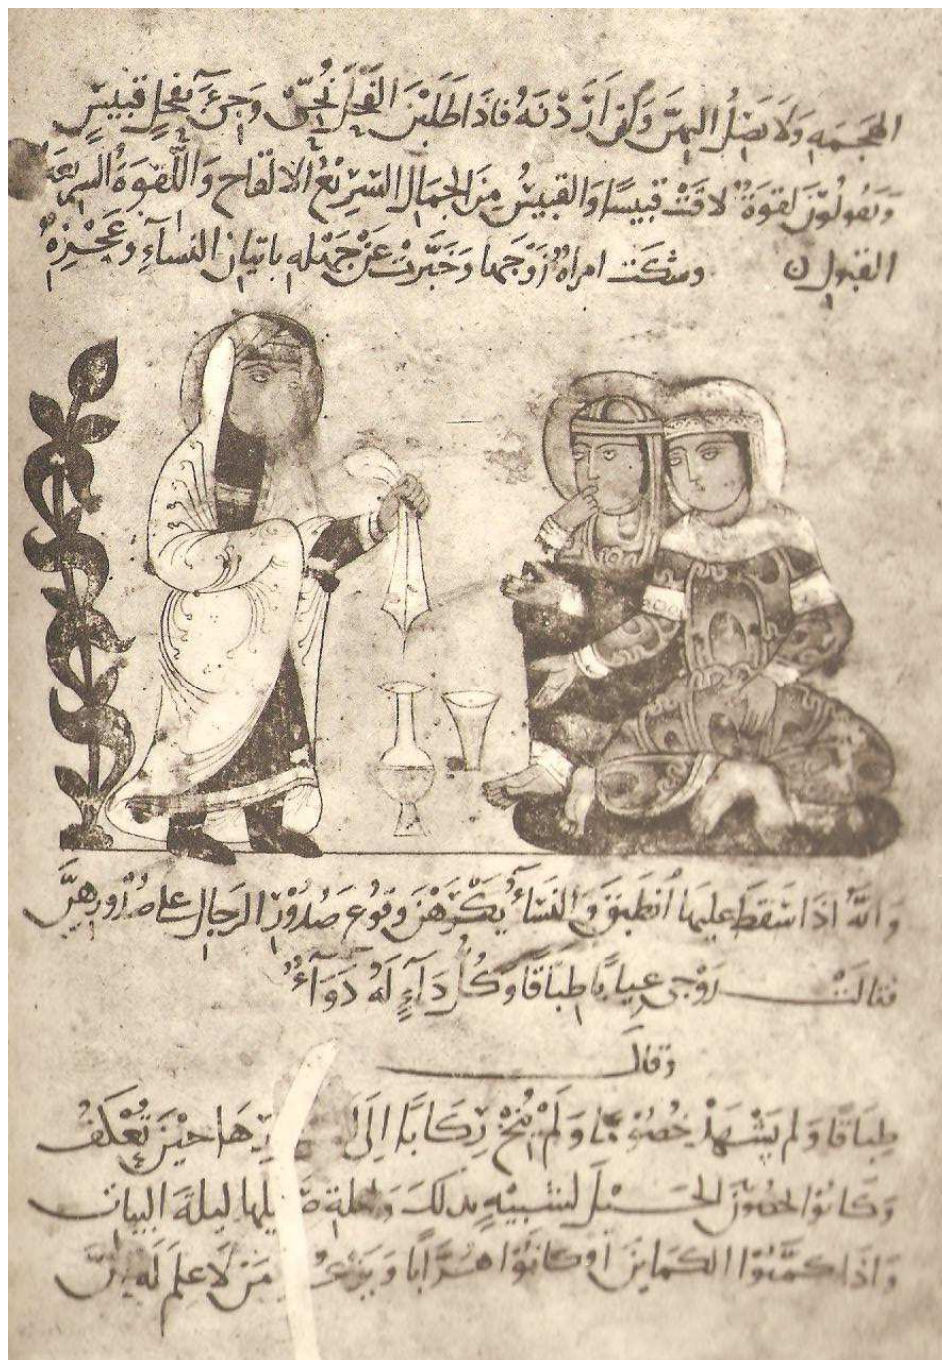 الهجمه ولا يصل اليهن ولو اردنه فاذا طلبن الفحل نحى وجئ بفحل قبيس
ويقولون لقوة لاقت قبيسا والقبيس من الجمال السريع الالقاح واللقوة السريعة
القبول ن وشكت امراة زوجها وخبرت عن جهله باتيان النساء وعجزه
وانه اذا سقط عليها انطبق والنساء يكرهن وقوع صدور الرجال على صدورهن
فقالت زوجى عياياء طباقا وكل داء له دواء
وقال
طباقا ولم يشهد خصوما ولم ينخ ركابا الى حين تعكف
وكانوا الخيل لتشبيه بذلك وليلة ليلة البيات
واذا كمنوا الكماين او كانوا هرابا من لا علم له